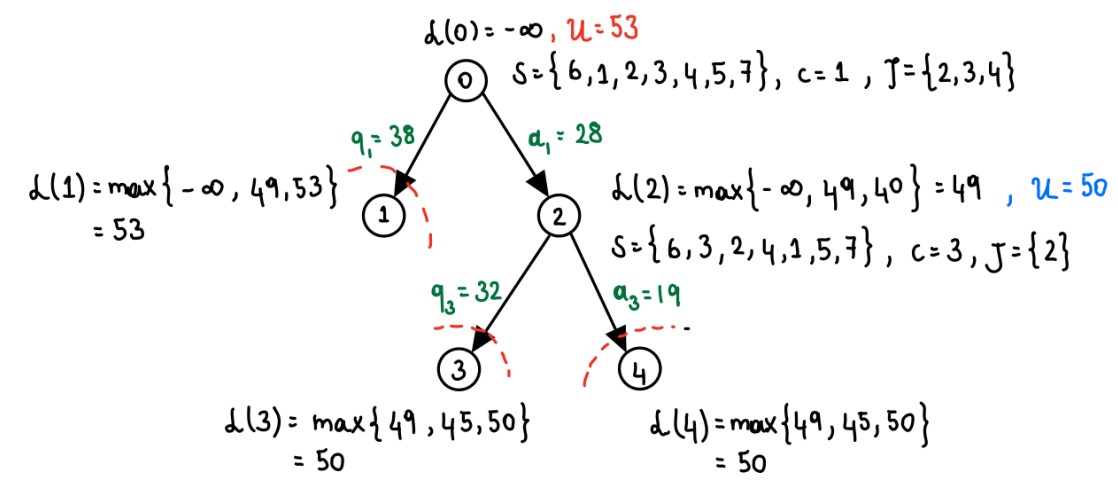 ℒ(0) = -∞, U = 53
0
S = {6,1,2,3,4,5,7}, c = 1, J = {2,3,4}
q₁ = 38
a₁ = 28
ℒ(1) = max{-∞, 49, 53}
= 53
1
2
ℒ(2) = max{-∞, 49, 40} = 49, U = 50
S = {6,3,2,4,1,5,7}, c = 3, J = {2}
q₃ = 32
a₃ = 19
3
4
ℒ(3) = max{49, 45, 50}
= 50
ℒ(4) = max{49, 45, 50}
= 50